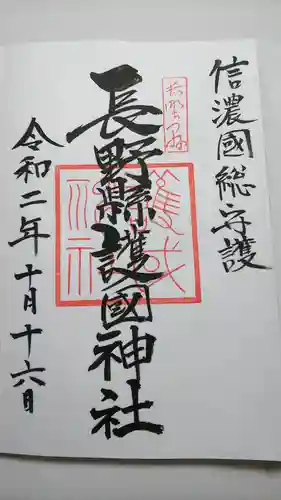 信濃國総守護
長野縣護國神社
令和二年十月十六日